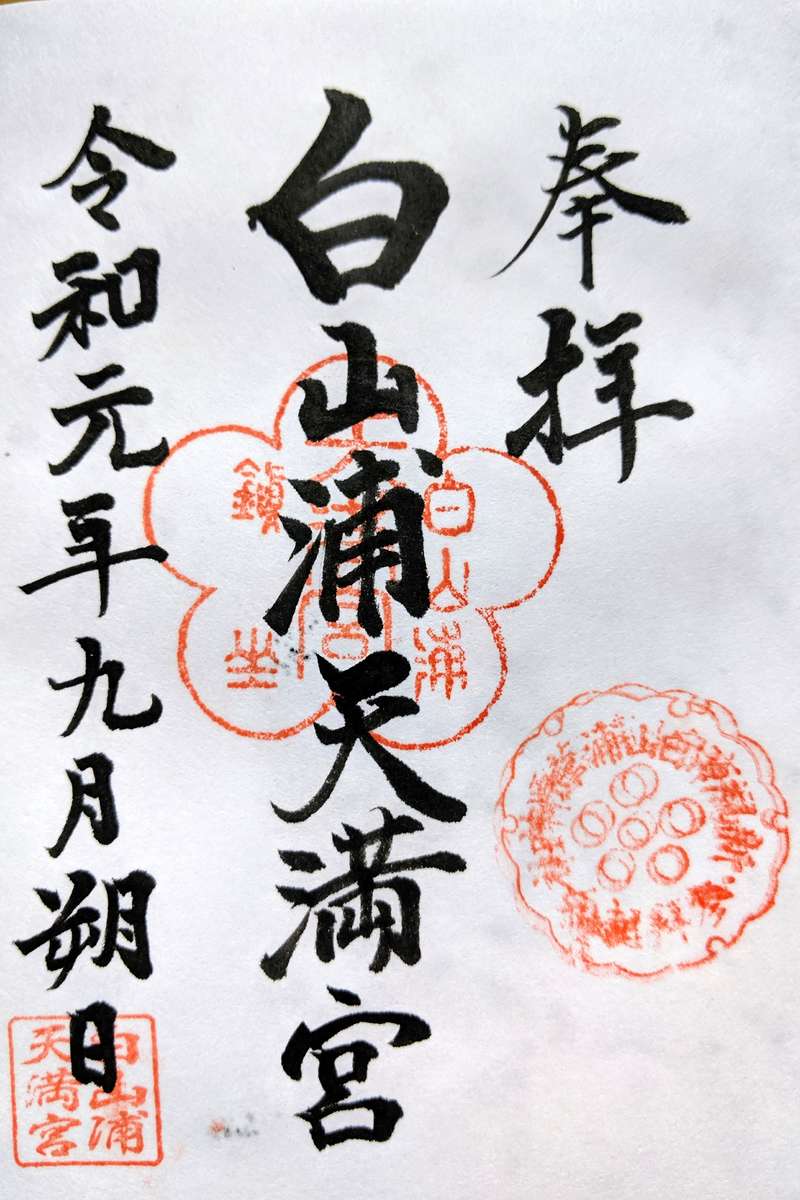 奉拝
白山浦天満宮
令和元年九月朔日
白山浦
鎮坐
白山浦
天満宮